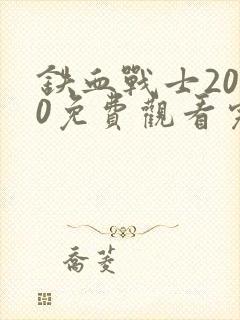 鉄血戰士20
0免費觀看完
喬菱